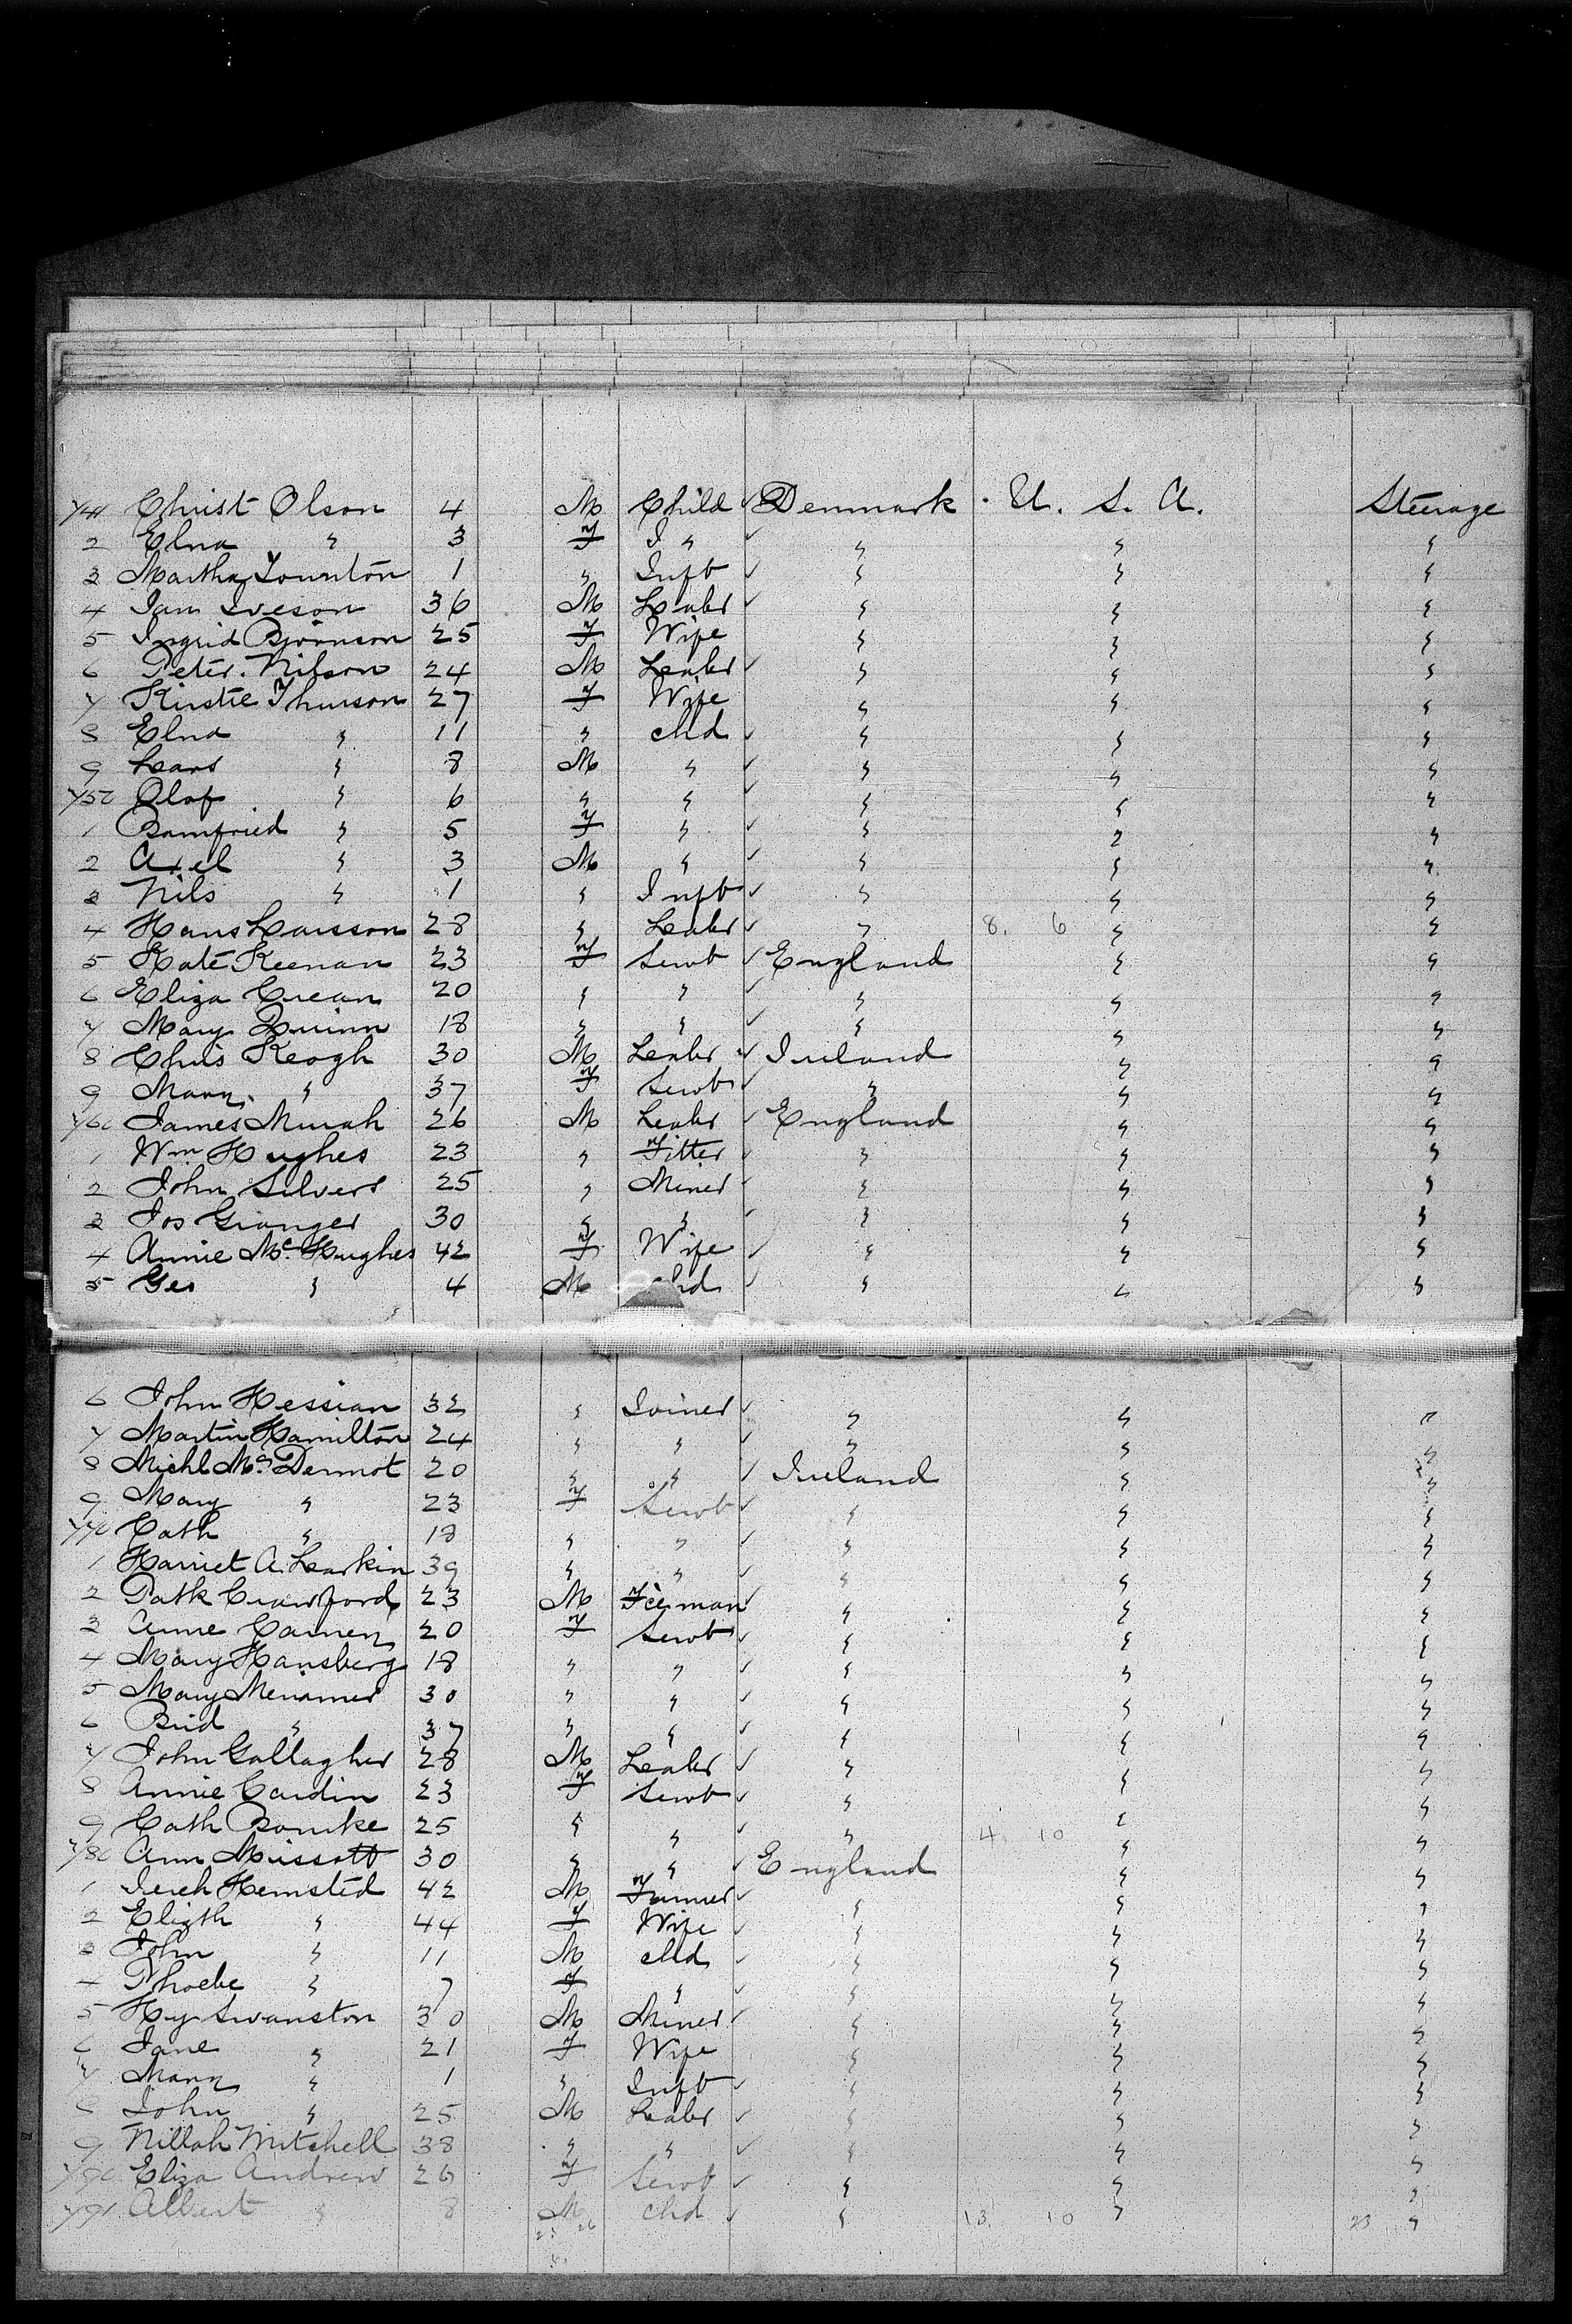 741 Christ Olson 4 M Child ✓ Denmark . U. S. A. Steerage
2 Elna " 3 F I " ✓ " " "
3 Martha Lounton 1 " Inft ✓ " " "
4 Jan Iveson 36 M Labr ✓ " " "
5 Ingrid Bjornson 25 F Wife " " "
6 Peter. Nilson 24 M Labr ✓ " " "
7 Kirstie Thurson 27 F Wife " " "
8 Elna " 11 " chd ✓ " " "
9 Lars " 8 M " ✓ " " "
750 Olof " 6 " " ✓ " " "
1 Bamfried " 5 F " ✓ " " "
2 Axel " 3 M " ✓ " " "
3 Nils " 1 " Inft ✓ " " "
4 Hans Larsson 28 " Labr ✓ " 8. 6 " "
5 Kate Keenan 23 F Servt ✓ England " "
6 Eliza Crean 20 " " ✓ " " "
7 Mary Quinn 18 " " ✓ " " "
8 Chris Keogh 30 M Labr ✓ Ireland " "
9 Mary " 37 F Servt ✓ " " "
760 James Murah 26 M Labr ✓ England " "
1 Wm Hughes 23 " Fitter ✓ " " "
2 John Silvers 25 " Miner " " "
3 Jos Granger 30 " " " " "
4 Annie Mc Hughes 42 F Wife ✓ " " "
5 Geo " 4 M chd ✓ " " "
6 John Hessian 32 " Joiner ✓ " " "
7 Martin Hamilton 24 " " ✓ " " "
8 Michl Mc Dermot 20 " " ✓ Ireland " "
9 Mary " 23 F Servt ✓ " " "
770 Cath " 18 " " ✓ " " "
1 Harriet A. Larkin 39 " " ✓ " " "
2 Patk Crawford 23 M Iceman ✓ " " "
3 Anne Carney 20 F Servt ✓ " " "
4 Mary Hansberg 18 " " ✓ " " "
5 Mary 30 " " ✓ " " "
6 Brid " 37 " " ✓ " " "
7 John Gallagher 28 M Labr ✓ " " "
8 Annie Cardin 23 F Servt ✓ " " "
9 Cath Bourke 25 " " ✓ " 4. 10 " "
780 Ann Missott 30 " " ✓ England " "
1 Jerch Hemsted 42 M Farmer ✓ " " "
2 Elizth " 44 F Wife " " "
3 John " 11 M chd ✓ " " "
4 Phoebe " 7 F " ✓ " " "
5 Hy Swanston 30 M Miner ✓ " " "
6 Jane " 21 F Wife " " "
7 Mary " 1 " Inft ✓ " " "
8 John " 25 M Labr ✓ " " "
9 Nillah Mitchell 38 " " ✓ " " "
790 Eliza Andrew 26 F Servt ✓ " " "
791 Albert " 8 M chd ✓ " 13. 10 " 23 "
25 26